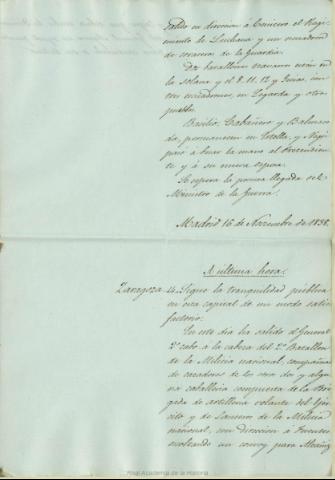 Salió en direccion á Cenicero el Regi-
miento de Luchana y un escuadron
de coraceros de la Guardia.
Dos batallones navarros están en
la Solana y el 8, 11, 12 y Guias, con
tres escuadrones, en Legarda y otros
pueblos.
Basilio, Cabañero y Balmase-
da, permanecen en Estella, y Negri
pasó á besar la mano al Pretendien-
te y á su nueva esposa.
Se espera la pronta llegada del
Ministro de la Guerra.
Madrid 16 de Noviembre de 1838.
A última hora.
Zaragoza 14. Sigue la tranquilidad pública
en esta capital de un modo satis-
factorio.
En este dia ha salido el General
2º cabo á la cabeza del 2º Batallon
de la Milicia nacional, compañias
de cazadores de los otros dos y algu-
na caballeria compuesta de la Bri-
gada de artilleria volante del Ejér-
cito y de Lanceros de la Milicia
nacional, con direccion á Fuentes
escoltando un convoy para Alcañiz
Real Academia de la Historia